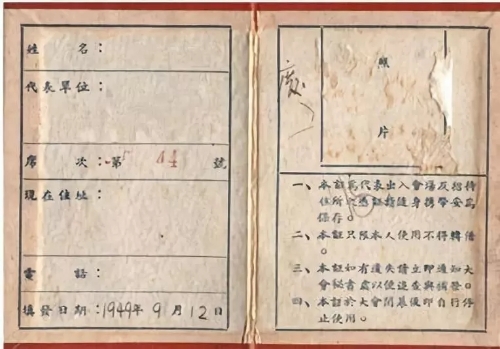 姓 名：
代表單位：
席 次：第 44 號
現在住址：
電 話：
填發日期：1949年9月12日
照
片
一、本証爲代表出入會場及招待
住所之憑証請隨身携帶妥爲
保存。
二、本証只限本人使用不得轉借
。
三、本証如有遺失請立即通知大
會秘書處以便追查與補發。
四、本証於大會閉幕後即自行停
止使用。